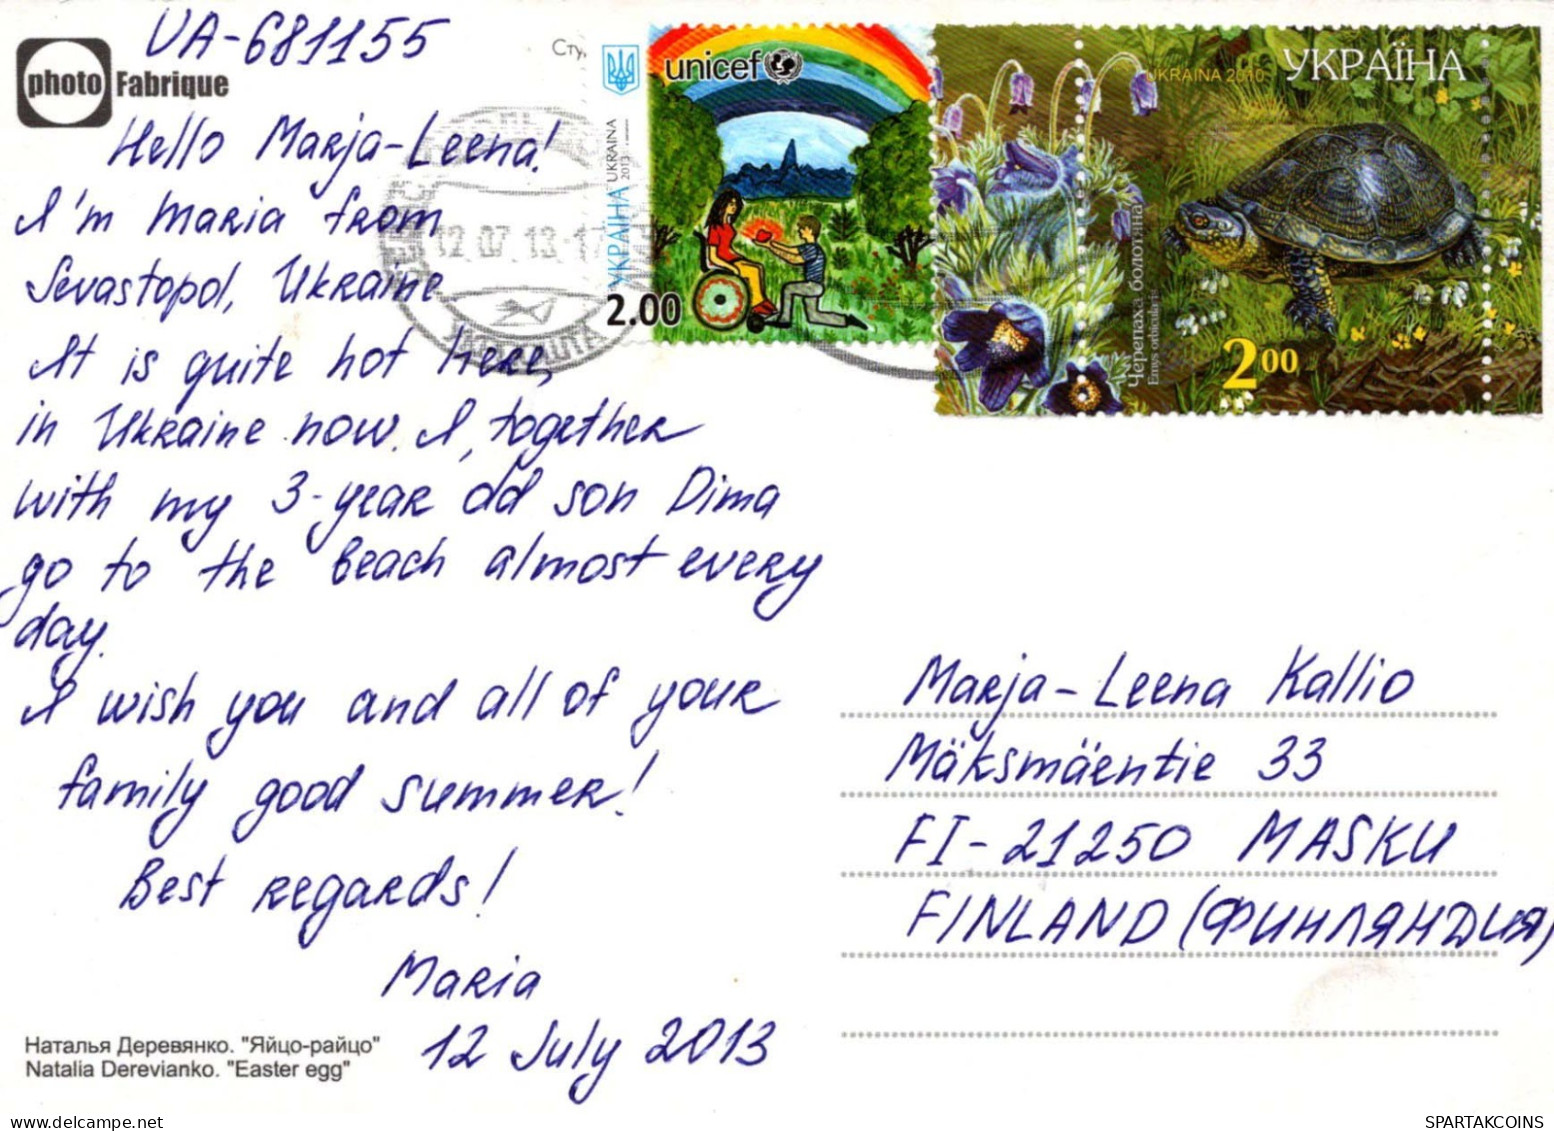 UA-681155
photo Fabrique
Hello Marja-Leena!
I'm Maria from
Sevastopol, Ukraine
It is quite hot here,
in Ukraine now. I, together
with my 3-year old son Dima
go to the beach almost every
day.
I wish you and all of your
family good summer!
Best regards!
Maria
12 July 2013
Наталья Деревянко. "Яйцо-райцо"
Natalia Derevianko. "Easter egg"
unicef
УКРАЇНА UKRAINA
2013
2.00
12.07.13
UKRAINA 2010 УКРАЇНА
Черепаха болотяна
Emys orbicularis
2.00
Marja-Leena Kallio
Mäksmäentie 33
FI-21250 MASKU
FINLAND (ФИНЛЯНДИЯ)
SPARTAKCOINS.COM